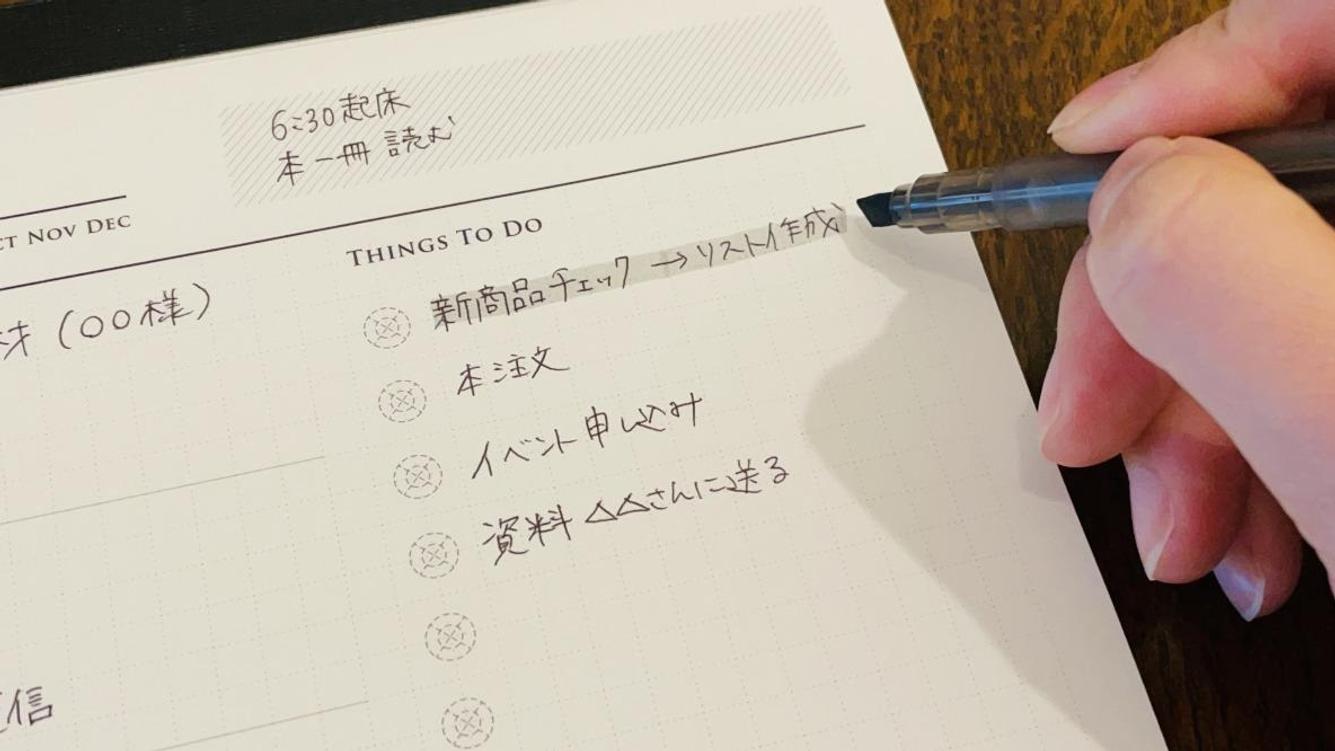 6:30起床
本一冊 読む
CT NOV DEC
THINGS TO DO
材 (〇〇様)
新商品チェック → リスト作成
本注文
イベント申し込み
資料 △△さんに送る
信